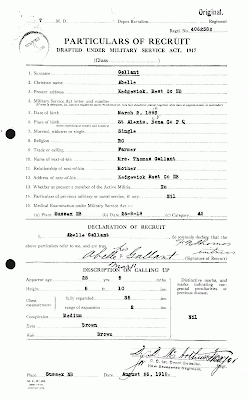 Original.
7 M. D. Depot Battalion.
Regtl. No. 4062582
PARTICULARS OF RECRUIT
DRAFTED UNDER MILITARY SERVICE ACT, 1917
(Class )
1. Surname Gallant
2. Christian name Abelle
3. Present address Kedgewick, Rest Co NB
4. Military Service Act letter and number
5. Date of birth March 2, 1895
6. Place of birth St Alexis, Bona Co P Q
7. Married, widower or single Single
8. Religion RC
9. Trade or calling Farmer
10. Name of next-of-kin Mrs. Thomas Gallant
11. Relationship of next-of-kin Mother
12. Address of next-of-kin Kedgewick Rest Co NB
13. Whether at present a member of the Active Militia No
14. Particulars of previous military or naval service, if any Nil
15. Medical Examination under Military Service Act:—
(a) Place Sussex NB (b) Date 25-8-18 (c) Category A2
DECLARATION OF RECRUIT
I, Abelle Gallant, do solemnly declare that the
above particulars refer to me, and are true.
Abelle Gallant
(Signature of Recruit)
DESCRIPTION ON CALLING UP
Apparent age 23 yrs 5 mths
Height 5 ft 10 ins
Chest measurement fully expanded 38 ins
range of expansion 2 ins
Complexion Medium
Eyes Brown
Hair Brown
Distinctive marks, and marks indicating congenital peculiarities or previous disease.
Nil
Place Sussex NB Date August 25, 1918